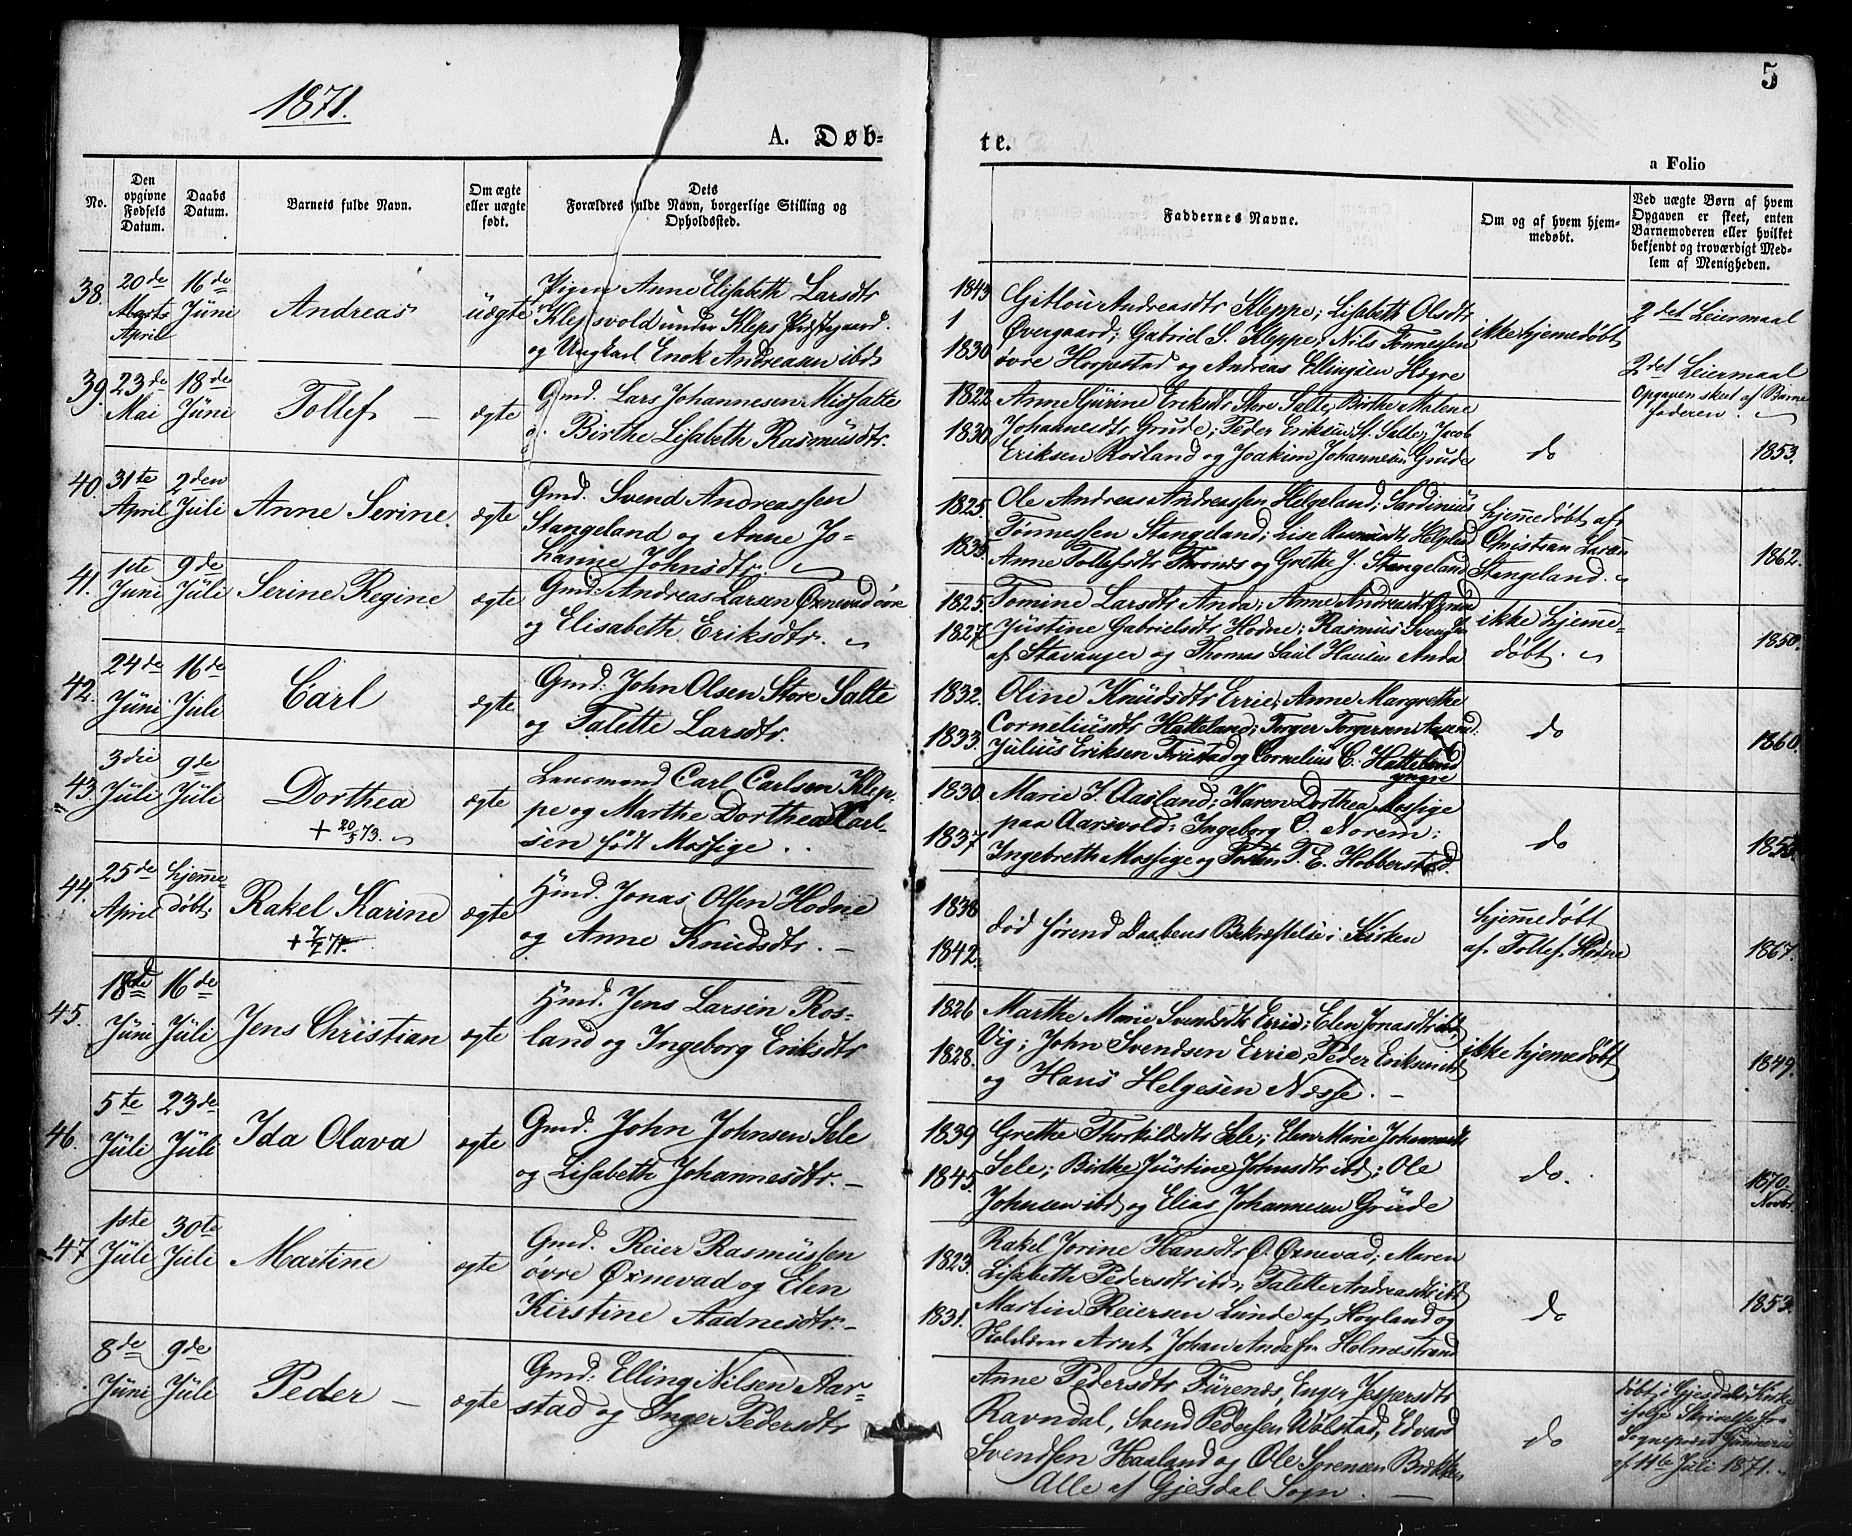 1871.
5
A. Døb=
te.
a Folio
No.
Den
opgivne
Fødsels
Datum.
Daabs
Datum.
Barnets fulde Navn.
Om ægte
eller uægte
født.
Dets
Forældres fulde Navn, borgerlige Stilling og
Opholdssted.
Faddernes Navne.
Om og af hvem hjem-
medøbt.
Ved uægte Børn af hvem
Opgaven er skeet, enten
Barnemoderen eller hvilket
bekjendt og troværdigt Med-
lem af Menigheden.
38.
20de
Marts
April
16de
Juni
Andreas
uægte
Pigen Anne Elisabeth Larsdtr
Klepsvold under Kleps Præstegaard.
og Ungkarl Enok Andreasen ibd
1843
1
1830
Gitlou Andreasdtr Kleppe; Lisabeth Olsdtr
Øvergaard; Gabriel S. Kleppe, Nils Tønnessen
øvre Horpestad og Andreas Ellingsen Hogre
ikke hjemedøbt
2det Leiermaal
2det Leiermaal
Opgaven skeet af Barne
faderen.
39.
23de
Mai
18de
Juni
Tollef —
ægte
Gmd. Lars Johannesen Midsalte
o. Birthe Lisabeth Rasmusdtr.
1822
1830
Anne Gurine Eriksdtr Store Salte, Birthe Malene
Johannesdtr Grude; Peder Eriksen St. Salte, Jacob
Eriksen Rosland og Joakim Johannesen Grude
do
1853.
40.
31te
April
2den
Juli
Anne Serine.
ægte
Gmd. Svend Andreassen
Stangeland og Anne Jo-
hanne Johnsdtr.
1825.
1835.
Ole Andreas Andreassen Helgeland; Sardinius
Tønnessen Stangeland; Lise Rasmusdtr Helgeland
Anne Tollefsdtr Thornes og Grethe J. Stangeland
hjemedøbt af
Christian Larsen
Stangeland.
1862.
41.
1ste
Juni
9de
Juli
Serine Regine
ægte
Gmd. Andreas Larsen Øxnevad øvre
og Elisabeth Eriksdtr.
1825.
1827.
Tomine Larsdtr Anda; Anne Andreasdtr Øxnevad
Justine Gabrielsdtr Hodne; Rasmus Svendsen
af Stavanger og Thomas Saul Hansen Anda
ikke hjeme-
døbt.
1850.
42.
24de
Juni
16de
Juli
Carl
ægte
Gmd. John Olsen Store Salte
og Talette Larsdtr.
1832.
1833.
Oline Knudsdtr Errie; Anne Margrethe
Corneliusdtr Hatteland; Torger Torgersen Aasland
Julius Eriksen Friestad og Cornelius C. Hatteland
yngre
do
1860.
43.
3die
Juli
9de
Juli
Dorthea
+ 20/5 73.
ægte
Lensmand Carl Carlsen Klep-
pe og Marthe Dorthea Carl-
sen født Mossige . .
1830.
1837.
Marie J. Aasland; Karen Dorthea Mossige
paa Aarsvold; Ingeborg O. Norem;
Ingebreth Mossige og T. E. Hobberstad.
do
44.
25de
April
hjemme-
døbt.
Rakel Karine
+ 7/5 71.
ægte
Hmd. Jonas Olsen Hodne
og Anne Knudsdtr. —
1838
1842.
død førend Daabens Bekræftelse i Kirken
hjemmedøbt
af Tollef Hodne
1867.
45.
18de
Juni
16de
Juli
Jens Christian
ægte
Hmd. Jens Larsen Ros-
land og Ingeborg Eriksdtr
1826
1828.
Marthe Marie Svendsdtr Errie; Elen Jonasdtr ibd;
Vig; John Svendsen Errie, Peder Eriksen ibd
og Hans Helgesen Næsse. —
ikke hjemedøbt
1849.
46.
5te
Juli
23de
Juli
Ida Olava
ægte
Gmd. John Johnsen Sele
og Lisabeth Johannesdtr. —
1839
1845.
Grethe Thorkildsdtr Sele; Elen Marie Johannesdtr
Sele; Birthe Justine Johnsdtr ibd; Ole
Johnsen ibd og Elias Johannesen Grude
do.
1870.
Novbr.
47
1ste
Juli
30te
Juli
Martine
ægte
Gmd. Reier Rasmussen
øvre Øxnevad og Elen
Kirstine Aadnesdtr. —
1823.
1831.
Rakel Jorine Hansdtr Ø. Øxnevad; Maren
Lisabeth Pedersdtr ibd, Talette Andreasdtr ibd
Martin Reiersen Lunde af Høyland og
Skolelærer Arnt Johan Anda fra Holmestrand
do
1853.
8de
Juni
9de
Juli
Peder —
ægte
Gmd: Elling Nilsen Aar-
stad og Inger Pedersdtr
Anne Pedersdtr Furenes, Enger Jespersdtr
Ravndal, Svend Pedersen Wølstad, Edvard
Svendsen Haaland og Ole Sørensen Birkken
Alle af Gjesdal Sogn. —
do
døbt i Gjesdal Kirke
ifølge Skrivelse fra
Sogneprest
af 11te Juli 1871.